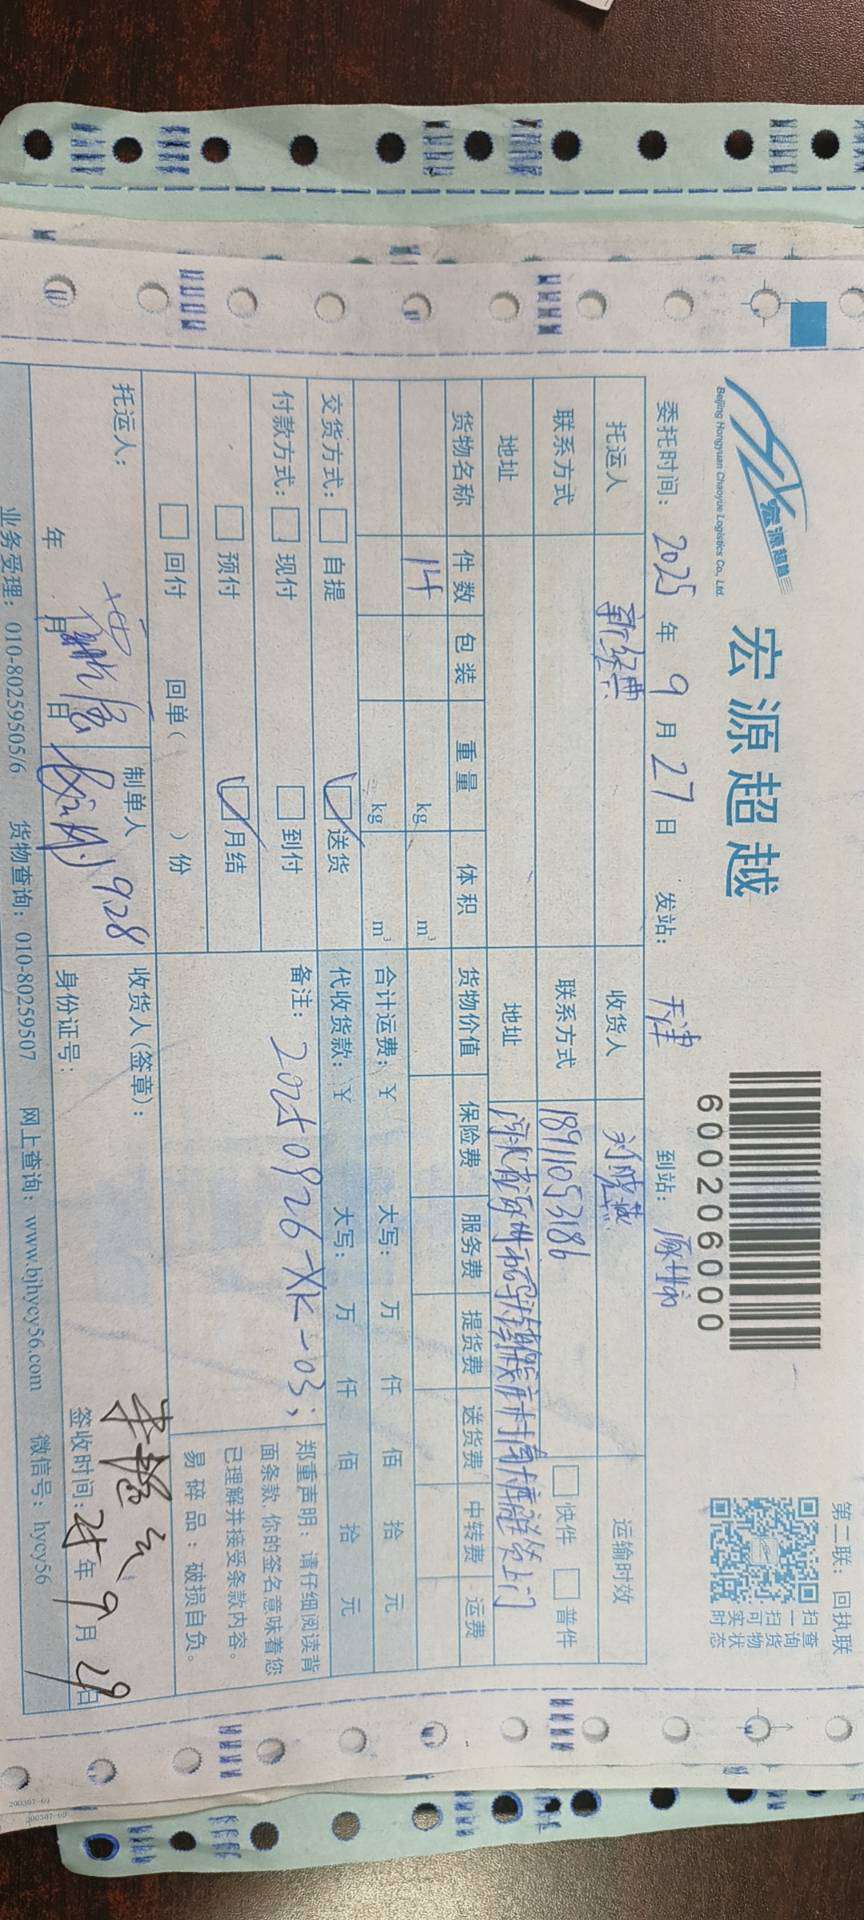 第二联：回执联
宏源超越
宏源超越
Beijing Hongyuan Chaoyue Logistics Co., Ltd.
600206000
扫一扫可实时
查询货物状态
委托时间：2025年9月27日 发站：天津 到站：涿州市
托运人 新经典 收货人 刘晓燕 运输时效
联系方式 联系方式 18911053186 快件 普件
地址 地址 河北省涿州市
货物名称 件数 包装 重量 体积 货物价值 保险费 服务费 提货费 送货费 中转费 运费
14 kg m³
kg m³ 合计运费：¥ 大写： 万 仟 佰 拾 元
交货方式： 自提 送货 代收货款：¥ 大写： 万 仟 佰 拾 元
付款方式： 现付 到付 备注：20250926-XK-03;
预付 月结
回付 回单( )份
郑重声明：请仔细阅读背
面条款，你的签名意味着您
已理解并接受条款内容。
易碎品：破损自负。
托运人： 制单人 收货人(签章)：
9.28
年 月 日 身份证号： 签收时间：25年9月29日
业务受理：010-80259505/6 货物查询：010-80259507 网上查询：www.bjhycy56.com 微信号：hycy56